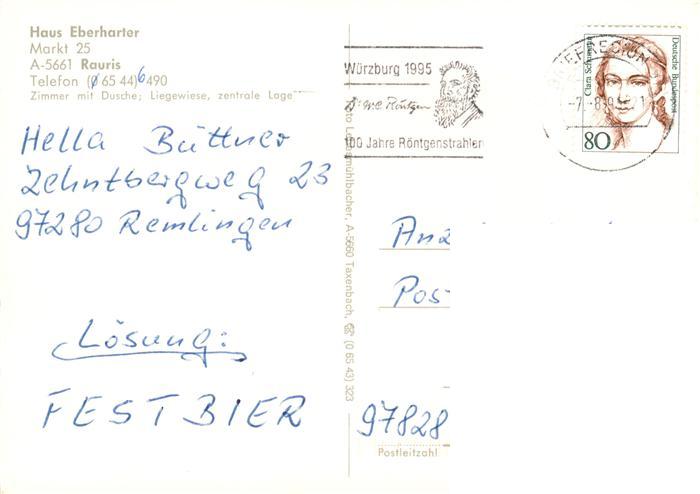 Haus Eberharter
Markt 25
A-5661 Rauris
Telefon (0 65 44) 6490
Zimmer mit Dusche; Liegewiese, zentrale Lage
Hella Büttner
Zehntbergweg 23
97280 Remlingen
Lösung:
FESTBIER
Würzburg 1995
100 Jahre Röntgenstrahlen
Clara Schumann
Deutsche Bundespost
80
A-5660 Taxenbach, ☎ (0 65 43) 323
Anz
Pos
97828
Postleitzahl